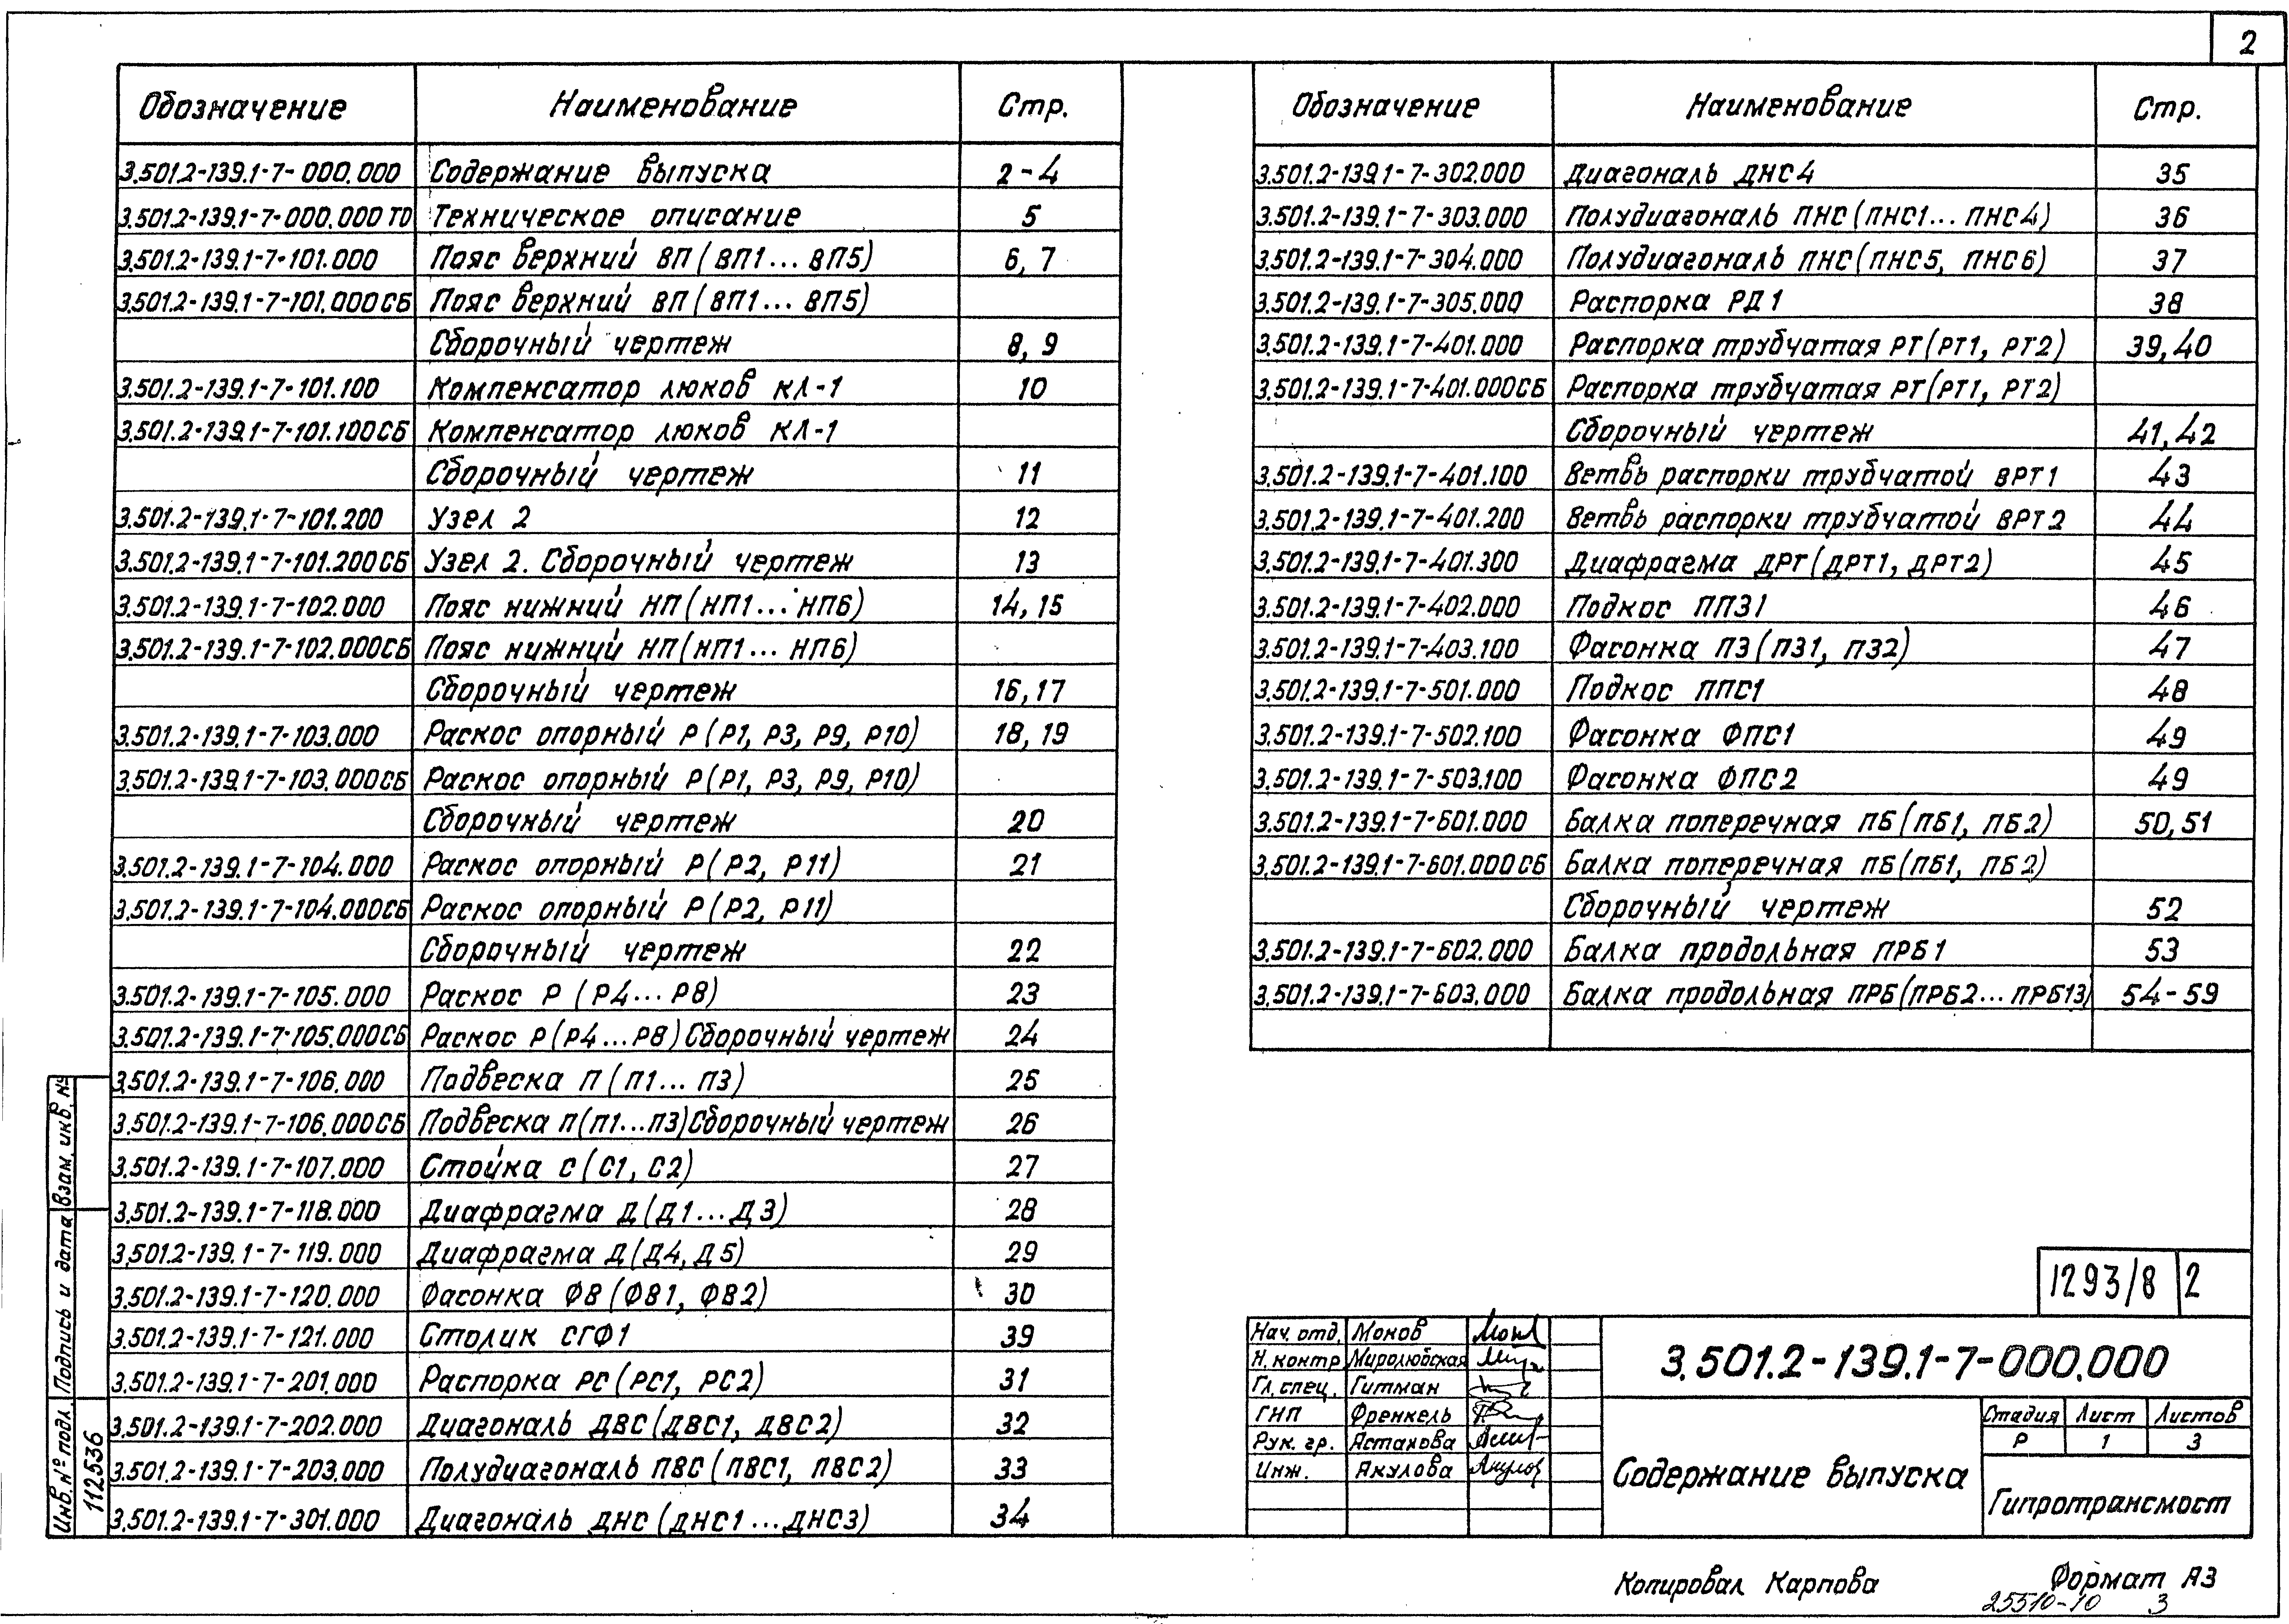 2
Обозначение Наименование Стр.
3.501.2-139.1-7-000.000 Содержание выпуска 2-4
3.501.2-139.1-7-000.000 ТО Техническое описание 5
3.501.2-139.1-7-101.000 Пояс верхний ВП (ВП1...ВП5) 6, 7
3.501.2-139.1-7-101.000СБ Пояс верхний ВП (ВП1...ВП5)
Сборочный чертеж 8, 9
3.501.2-139.1-7-101.100 Компенсатор люков КЛ-1 10
3.501.2-139.1-7-101.100СБ Компенсатор люков КЛ-1
Сборочный чертеж 11
3.501.2-139.1-7-101.200 Узел 2 12
3.501.2-139.1-7-101.200СБ Узел 2. Сборочный чертеж 13
3.501.2-139.1-7-102.000 Пояс нижний НП (НП1...НП6) 14, 15
3.501.2-139.1-7-102.000СБ Пояс нижний НП (НП1...НП6)
Сборочный чертеж 16, 17
3.501.2-139.1-7-103.000 Раскос опорный Р (Р1, Р3, Р9, Р10) 18, 19
3.501.2-139.1-7-103.000СБ Раскос опорный Р (Р1, Р3, Р9, Р10)
Сборочный чертеж 20
3.501.2-139.1-7-104.000 Раскос опорный Р (Р2, Р11) 21
3.501.2-139.1-7-104.000СБ Раскос опорный Р (Р2, Р11)
Сборочный чертеж 22
3.501.2-139.1-7-105.000 Раскос Р (Р4...Р8) 23
3.501.2-139.1-7-105.000СБ Раскос Р (Р4...Р8) Сборочный чертеж 24
3.501.2-139.1-7-106.000 Подвеска П (П1...П3) 25
3.501.2-139.1-7-106.000СБ Подвеска П (П1...П3) Сборочный чертеж 26
3.501.2-139.1-7-107.000 Стойка С (С1, С2) 27
3.501.2-139.1-7-118.000 Диафрагма Д (Д1...Д3) 28
3.501.2-139.1-7-119.000 Диафрагма Д (Д4, Д5) 29
3.501.2-139.1-7-120.000 Фасонка ФВ (ФВ1, ФВ2) 30
3.501.2-139.1-7-121.000 Столик СГФ1 39
3.501.2-139.1-7-201.000 Распорка РС (РС1, РС2) 31
3.501.2-139.1-7-202.000 Диагональ ДВС (ДВС1, ДВС2) 32
3.501.2-139.1-7-203.000 Полудиагональ ПВС (ПВС1, ПВС2) 33
3.501.2-139.1-7-301.000 Диагональ ДНС (ДНС1...ДНС3) 34
Обозначение Наименование Стр.
3.501.2-139.1-7-302.000 Диагональ ДНС4 35
3.501.2-139.1-7-303.000 Полудиагональ ПНС (ПНС1...ПНС4) 36
3.501.2-139.1-7-304.000 Полудиагональ ПНС (ПНС5, ПНС6) 37
3.501.2-139.1-7-305.000 Распорка РД1 38
3.501.2-139.1-7-401.000 Распорка трубчатая РТ (РТ1, РТ2) 39, 40
3.501.2-139.1-7-401.000СБ Распорка трубчатая РТ (РТ1, РТ2)
Сборочный чертеж 41, 42
3.501.2-139.1-7-401.100 Ветвь распорки трубчатой ВРТ1 43
3.501.2-139.1-7-401.200 Ветвь распорки трубчатой ВРТ2 44
3.501.2-139.1-7-401.300 Диафрагма ДРТ (ДРТ1, ДРТ2) 45
3.501.2-139.1-7-402.000 Подкос ППЗ1 46
3.501.2-139.1-7-403.100 Фасонка ПЗ (ПЗ1, ПЗ2) 47
3.501.2-139.1-7-501.000 Подкос ППС1 48
3.501.2-139.1-7-502.100 Фасонка ФПС1 49
3.501.2-139.1-7-503.100 Фасонка ФПС2 49
3.501.2-139.1-7-601.000 Балка поперечная ПБ (ПБ1, ПБ2) 50, 51
3.501.2-139.1-7-601.000СБ Балка поперечная ПБ (ПБ1, ПБ2)
Сборочный чертеж 52
3.501.2-139.1-7-602.000 Балка продольная ПРБ1 53
3.501.2-139.1-7-603.000 Балка продольная ПРБ (ПРБ2...ПРБ13) 54-59
1293/8 2
Нач. отд. Монов
Н. контр Миролюбская
Гл. спец. Гитман
ГНП Френкель
Рук. гр. Астахова
Инж. Якулова
3.501.2-139.1-7-000.000
Содержание выпуска
Стадия Лист Листов
Р 1 3
Гипротрансмост
Инв. № подл. Подпись и дата Взам. инв. №
112536
Копировал Карпова
Формат А3
25510-10 3